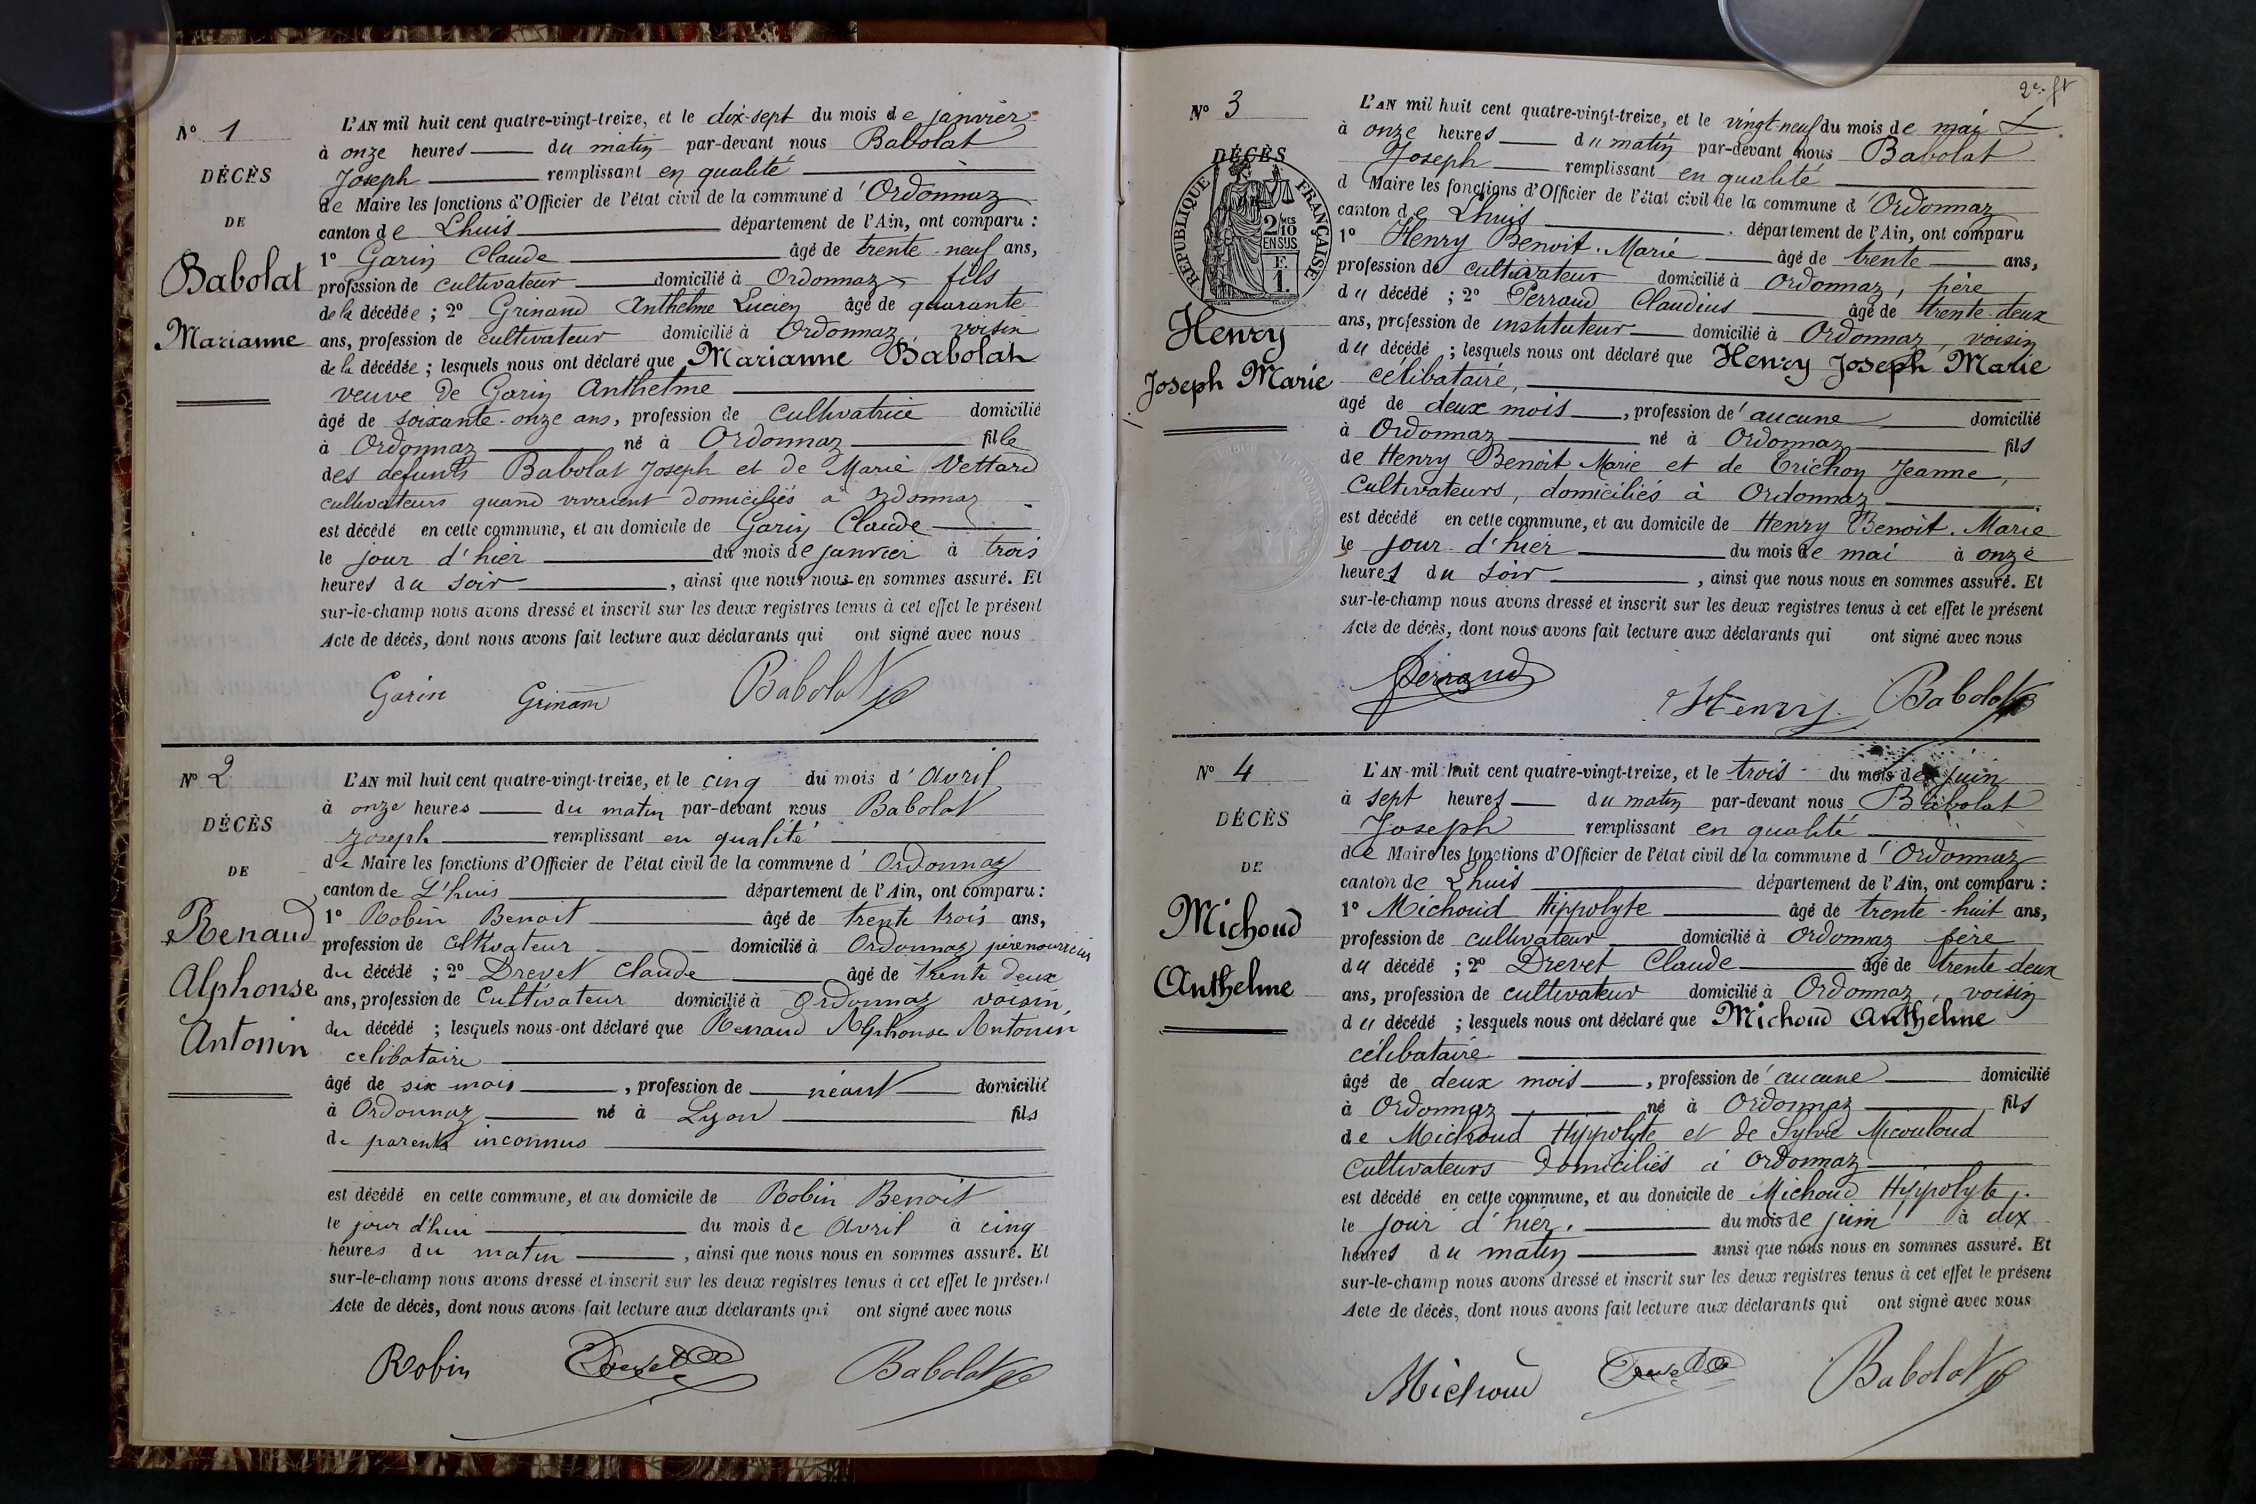 N° 1
DÉCÈS
DE
Babolat
Marianne
L'AN mil huit cent quatre-vingt-treize, et le dix-sept du mois de janvier
à onze heures du matin par-devant nous Babolat
Joseph remplissant en qualité
de Maire les fonctions d'Officier de l'état civil de la commune d'Ordonnaz
canton de Lhuis département de l'Ain, ont comparu :
1° Garin Claude âgé de trente-neuf ans,
profession de cultivateur domicilié à Ordonnaz fils
de la décédée ; 2° Grinand Anthelme Lucien âgé de quarante
ans, profession de cultivateur domicilié à Ordonnaz, voisin
de la décédée ; lesquels nous ont déclaré que Marianne Babolat
veuve de Garin Anthelme
âgé de soixante-onze ans, profession de cultivatrice domicilié
à Ordonnaz né à Ordonnaz fille
des defunts Babolat Joseph et de Marie Vettard
cultivateurs quand vivaient domiciliés à Ordonnaz
est décédé en cette commune, et au domicile de Garin Claude
le jour d'hier du mois de janvier à trois
heures du soir, ainsi que nous nous en sommes assuré. Et
sur-le-champ nous avons dressé et inscrit sur les deux registres tenus à cet effet le présent
Acte de décès, dont nous avons fait lecture aux déclarants qui ont signé avec nous
Garin Grinand Babolat
N° 2
DÉCÈS
DE
Renaud
Alphonse
Antonin
L'AN mil huit cent quatre-vingt-treize, et le cinq du mois d'Avril
à onze heures du matin par-devant nous Babolat
Joseph remplissant en qualité
de Maire les fonctions d'Officier de l'état civil de la commune d'Ordonnaz
canton de L'huis département de l'Ain, ont comparu :
1° Robin Benoit âgé de trente trois ans,
profession de cultivateur domicilié à Ordonnaz père nourricier
du décédé ; 2° Drevet Claude âgé de trente deux
ans, profession de Cultivateur domicilié à Ordonnaz voisin,
du décédé ; lesquels nous ont déclaré que Renaud Alphonse Antonin
celibataire
âgé de six mois, profession de néant domicilié
à Ordonnaz né à Lyon fils
de parents inconnus
est décédé en cette commune, et au domicile de Robin Benoit
le jour d'hui du mois de Avril à cinq
heures du matin, ainsi que nous nous en sommes assuré. Et
sur-le-champ nous avons dressé et inscrit sur les deux registres tenus à cet effet le présent
Acte de décès, dont nous avons fait lecture aux déclarants qui ont signé avec nous
Robin Drevet Babolat
2e ft
N° 3
DÉCÈS
RÉPUBLIQUE FRANÇAISE
2/10 EN SUS
Henry
Joseph Marie
L'AN mil huit cent quatre-vingt-treize, et le vingt-neuf du mois de mai
à onze heures du matin par-devant nous Babolat
Joseph remplissant en qualité
d Maire les fonctions d'Officier de l'état civil de la commune d'Ordonnaz
canton de Lhuis département de l'Ain, ont comparu
1° Henry Benoit-Marie âgé de trente ans,
profession de cultivateur domicilié à Ordonnaz, père
du décédé ; 2° Perraud Claudius âgé de trente-deux
ans, profession de instituteur domicilié à Ordonnaz, voisin
du décédé ; lesquels nous ont déclaré que Henry Joseph Marie
célibataire,
agé de deux mois, profession de aucune domicilié
à Ordonnaz né à Ordonnaz fils
de Henry Benoit Marie et de Trichon Jeanne,
Cultivateurs, domiciliés à Ordonnaz
est décédé en cette commune, et au domicile de Henry Benoit-Marie
le jour d'hier du mois de mai à onze
heures du soir, ainsi que nous nous en sommes assuré. Et
sur-le-champ nous avons dressé et inscrit sur les deux registres tenus à cet effet le présent
Acte de décès, dont nous avons fait lecture aux déclarants qui ont signé avec nous
Perraud Henry Babolat
N° 4
DÉCÈS
DE
Michoud
Anthelme
L'AN mil huit cent quatre-vingt-treize, et le trois du mois de juin
à sept heures du matin par-devant nous Babolat
Joseph remplissant en qualité
de Maire les fonctions d'Officier de l'état civil de la commune d'Ordonnaz
canton de Lhuis département de l'Ain, ont comparu :
1° Michoud Hippolyte âgé de trente-huit ans,
profession de cultivateur domicilié à Ordonnaz père
du décédé ; 2° Drevet Claude âgé de trente-deux
ans, profession de cultivateur domicilié à Ordonnaz, voisin
du décédé ; lesquels nous ont déclaré que Michoud Anthelme
célibataire
âgé de deux mois, profession de aucune domicilié
à Ordonnaz né à Ordonnaz fils
de Michoud Hippolyte et de Sylvie Micouloud
cultivateurs domiciliés à Ordonnaz
est décédé en cette commune, et au domicile de Michoud Hippolyte,
le jour d'hier. du mois de juin à dix
heures du matin ainsi que nous nous en sommes assuré. Et
sur-le-champ nous avons dressé et inscrit sur les deux registres tenus à cet effet le présent
Acte de décès, dont nous avons fait lecture aux déclarants qui ont signé avec nous
Michoud Drevet Babolat